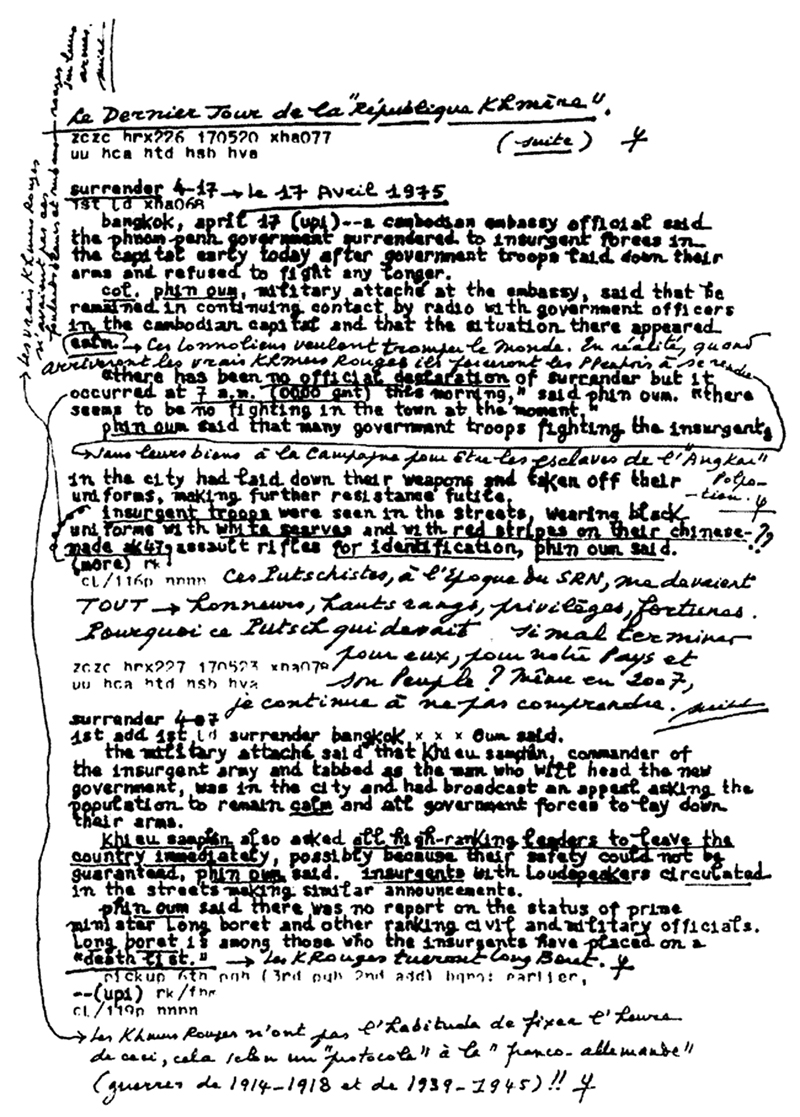 Le Dernier Jour de la "République Khmère".
zczc hrx226 170520 xha077
(suite)
uu hca htd hsb hva
surrender 4-17 → le 17 Avril 1975
1st ld xha068
bangkok, april 17 (upi)--a cambodian embassy official said
the phnom penh government surrendered to insurgent forces in
the capital early today after government troops laid down their
arms and refused to fight any longer.
col. phin oum, military attaché at the embassy, said that he
remained in continuing contact by radio with government officers
in the cambodian capital and that the situation there appeared
calm. → Ces Lonnoliens veulent tromper le Monde. En réalité, quand
arriveront les vrais Khmers Rouges ils forceront les à se rendre
"there has been no official declaration of surrender but it
occurred at 7 a.m. (0000 gmt) this morning," said phin oum. "there
seems to be no fighting in the town at the moment."
phin oum said that many government troops fighting the insurgents
leurs biens à la Campagne pour être les esclaves de l'"Angkar"
in the city had laid down their weapons and taken off their
Polpo-
uniforms, making further resistance futile.
-tien.
insurgent troops were seen in the streets, wearing black
uniforms with white scarves and with red stripes on their chinese-??
made ak47 assault rifles for identification, phin oum said.
(more) rk
cl/116p nnnn
Ces Putschistes, à l'époque du SRN, me devaient
TOUT → honneurs, hauts rangs, privilèges, fortunes.
Pourquoi ce Putsch qui devait si mal terminer
pour eux, pour notre Pays et
zczc hrx227 170523 xha078
uu hca htd hsb hva
son Peuple ? Même en 2007,
je continue à ne pas comprendre.
surrender 4-07
1st add 1st ld surrender bangkok x x x oum said.
the military attaché said that khieu samphan, commander of
the insurgent army and tabbed as the man who will head the new
government, was in the city and had broadcast an appeal asking the
population to remain calm and all government forces to lay down
their arms.
khieu samphan also asked all high-ranking leaders to leave the
country immediately, possibly because their safety could not be
guaranteed, phin oum said. insurgents with loudspeakers circulated
in the streets making similar announcements.
phin oum said there was no report on the status of prime
minister long boret and other ranking civil and military officials.
long boret is among those who the insurgents have placed on a
"death list." → les KRouges tueront Long Boret.
pickup 6th pgh (3rd pgh 2nd add) bgng: earlier,
--(upi) rk/
cl/119p nnnn
Les Khmers Rouges n'ont pas l'habitude de fixer l'heure
de ceci, cela selon un "protocole" à la "franco-allemande"
(guerres de 1914-1918 et de 1939-1945)!!
Les vrais Khmers Rouges
n'avaient pas ces
rouges
sur leurs
armes.